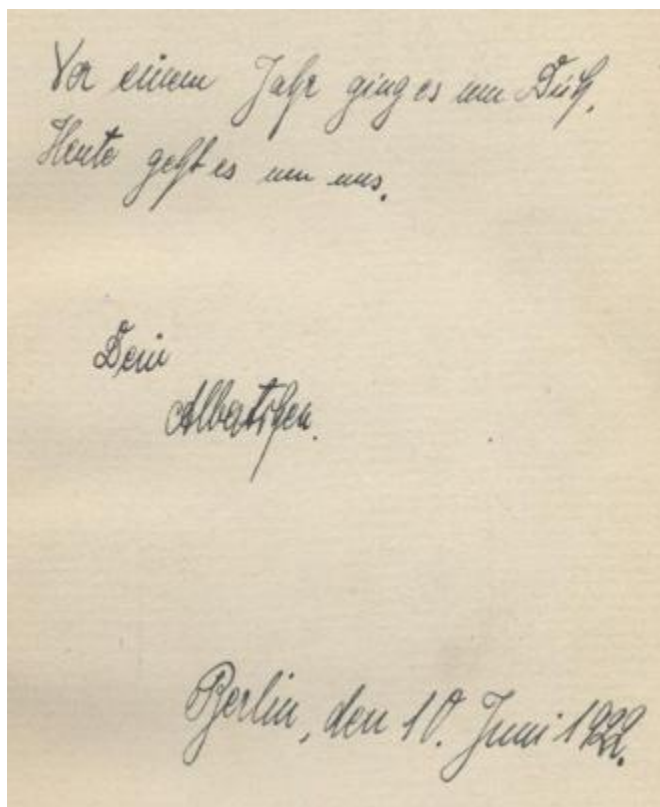 Vor einem Jahr ging es um Dich,
Heute geht es um uns.
Dein
Albertchen.
Berlin, den 10. Juni 1922.